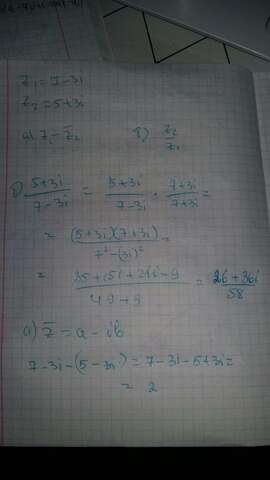 z₁ = 7 - 3i
z₂ = 5 + 3i
a) z₁ - z̄₂ б) z₂/z₁
б) (5+3i)/(7-3i) = (5+3i)/(7-3i) · (7+3i)/(7+3i) =
= ((5+3i)(7+3i))/(7² - (3i)²) =
= (35+15i+21i-9)/(49+9) = (26+36i)/58
a) z̄ = a - ib
7 - 3i - (5 - 3i) = 7 - 3i - 5 + 3i =
= 2